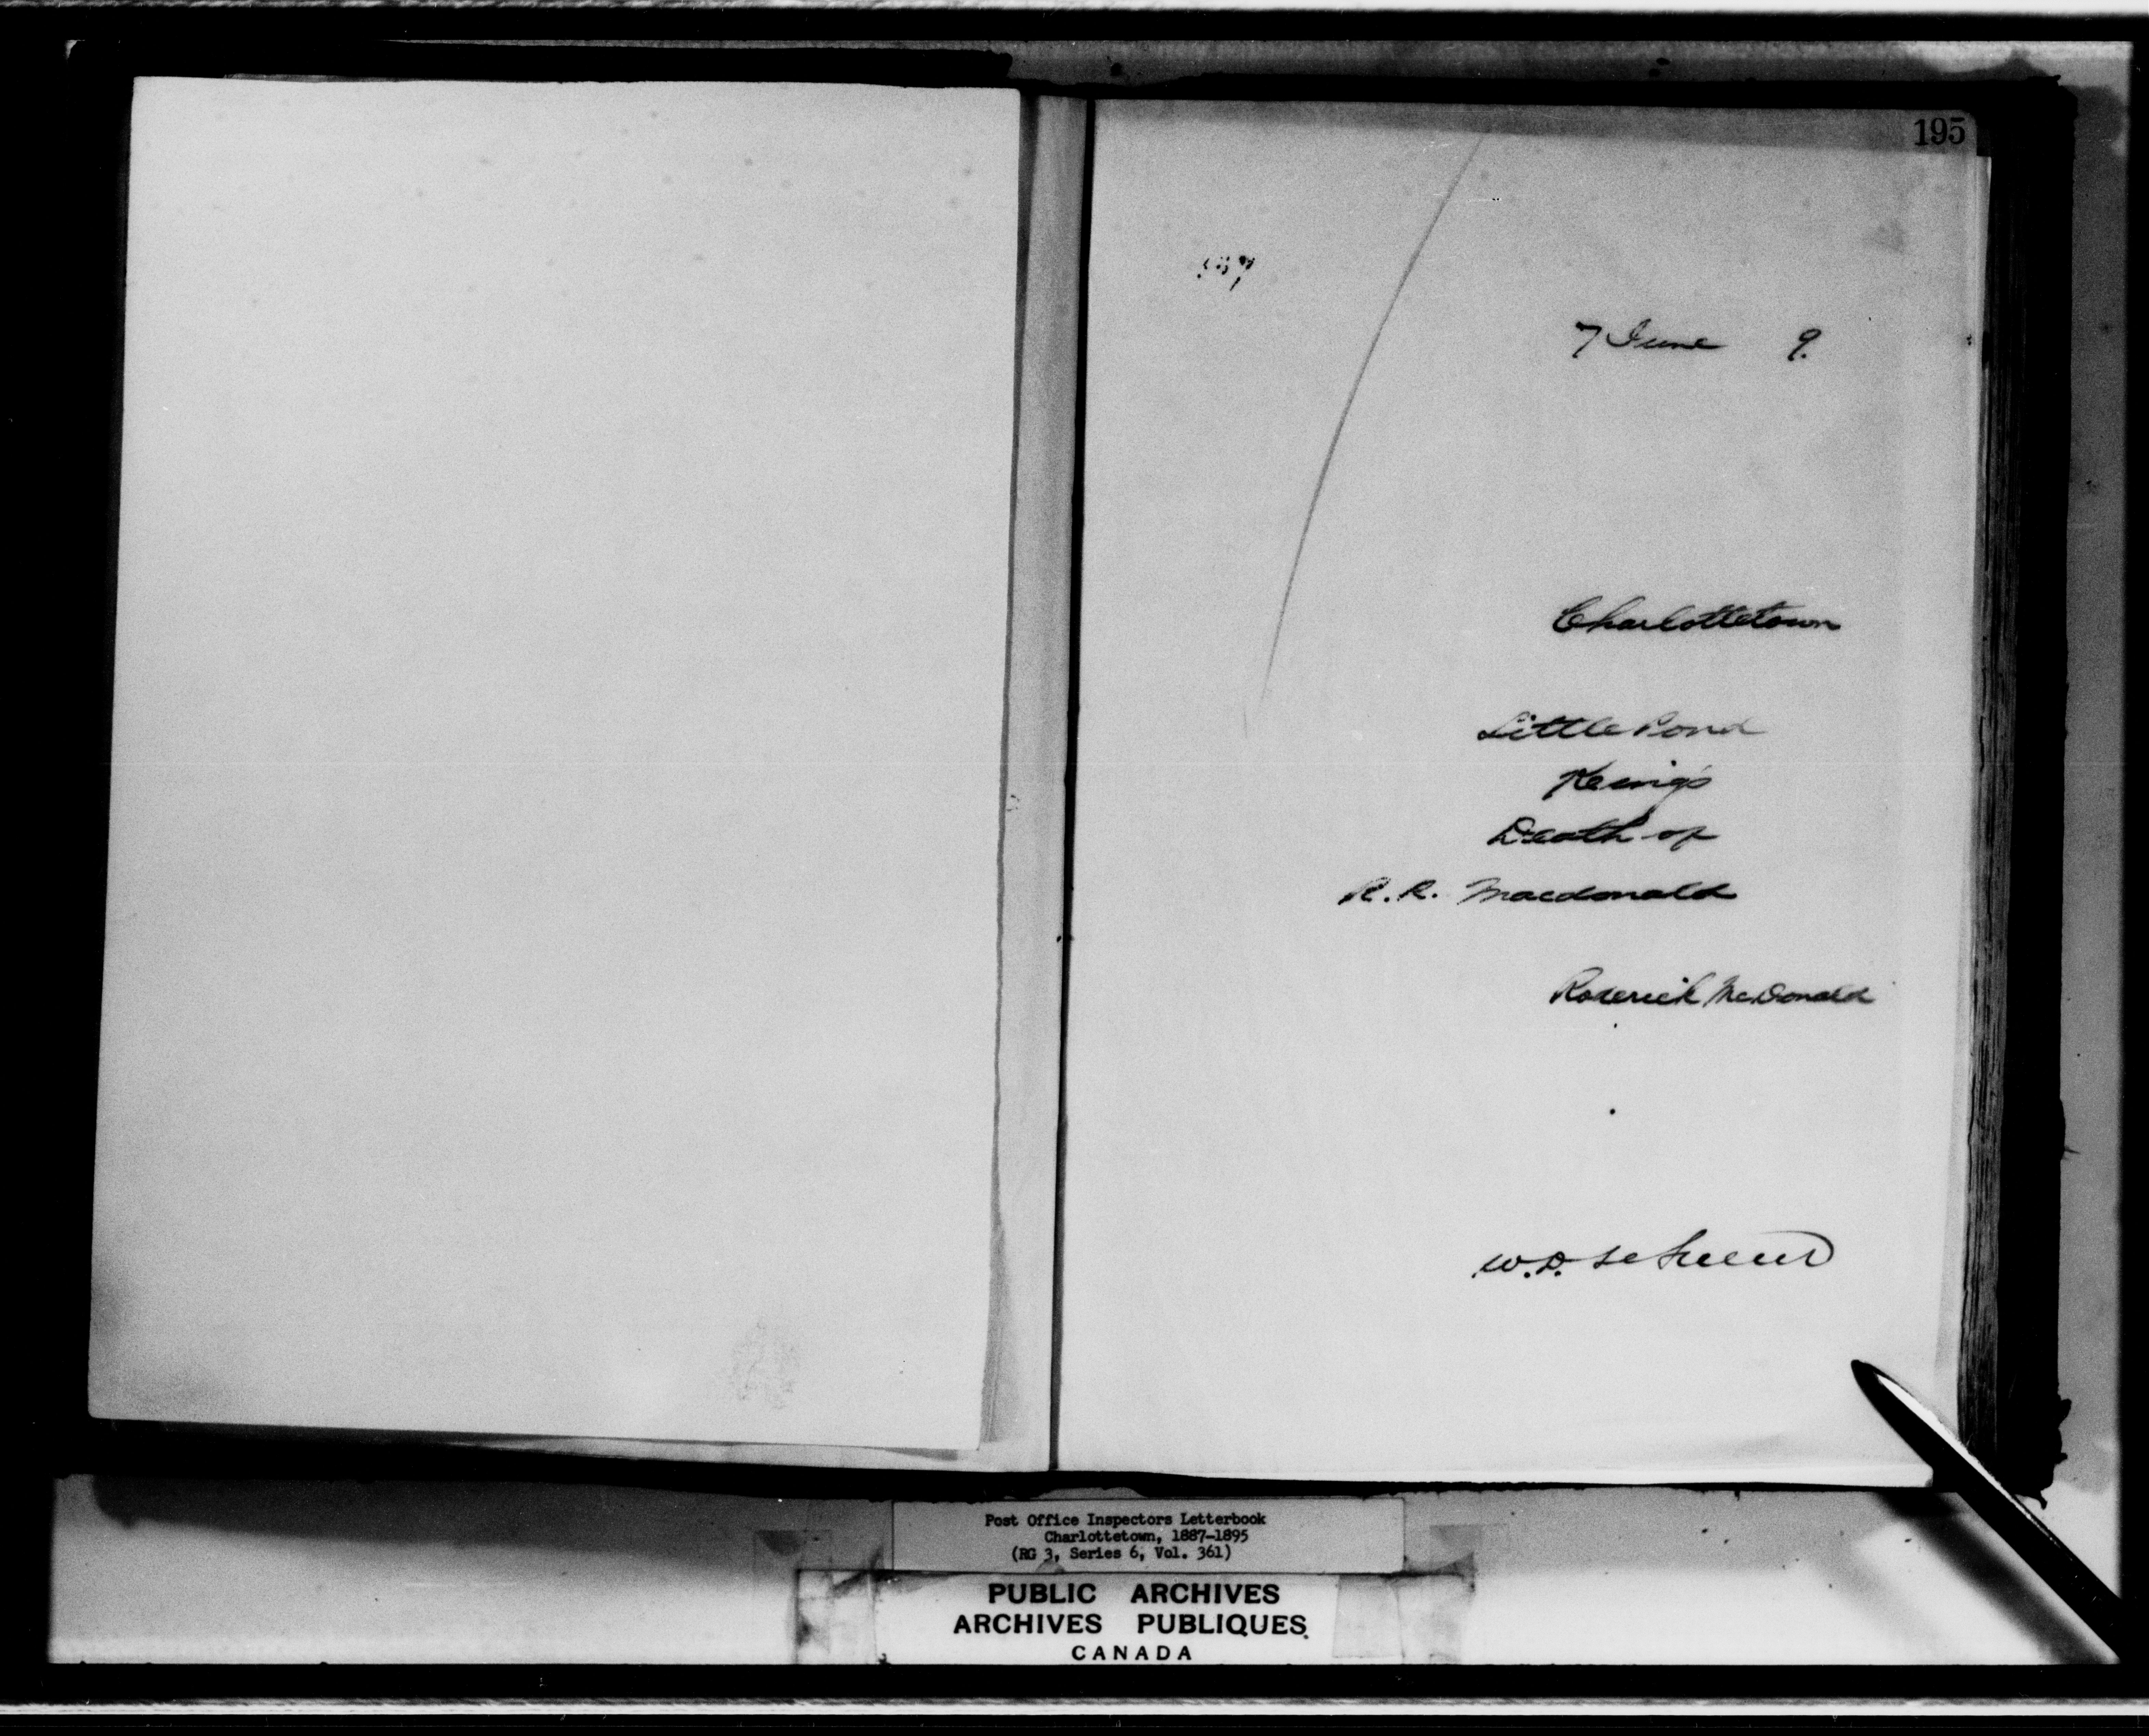 195
7 June 9.
Charlottetown
Little Pond
Kings
Death of
R. R. Macdonald
Roderick McDonald
W. D.
Post Office Inspectors Letterbook
Charlottetown, 1887-1895
(RG 3, Series 6, Vol. 361)
PUBLIC ARCHIVES
ARCHIVES PUBLIQUES
CANADA